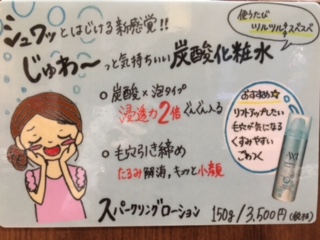 シュワッとはじける新感覚!!
使うたび
ツルツル
スベスベ
じゅわ〜っと気持ちいい炭酸化粧水
炭酸×泡タイプ
浸透力2倍ぐんぐん入る
毛穴引き締め
たるみ解消、キュッと小顔
おすすめ☆
リフトアップしたい
毛穴が気になる
くすみやすい
ごわつく
スパークリングローション 150g/3,500円(税抜)